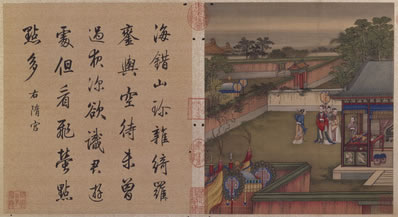 海錯山珍雜綺羅
鑾輿空待未曾
過夜深欲識君遊
處但看飛螢點
點多 右隋宮